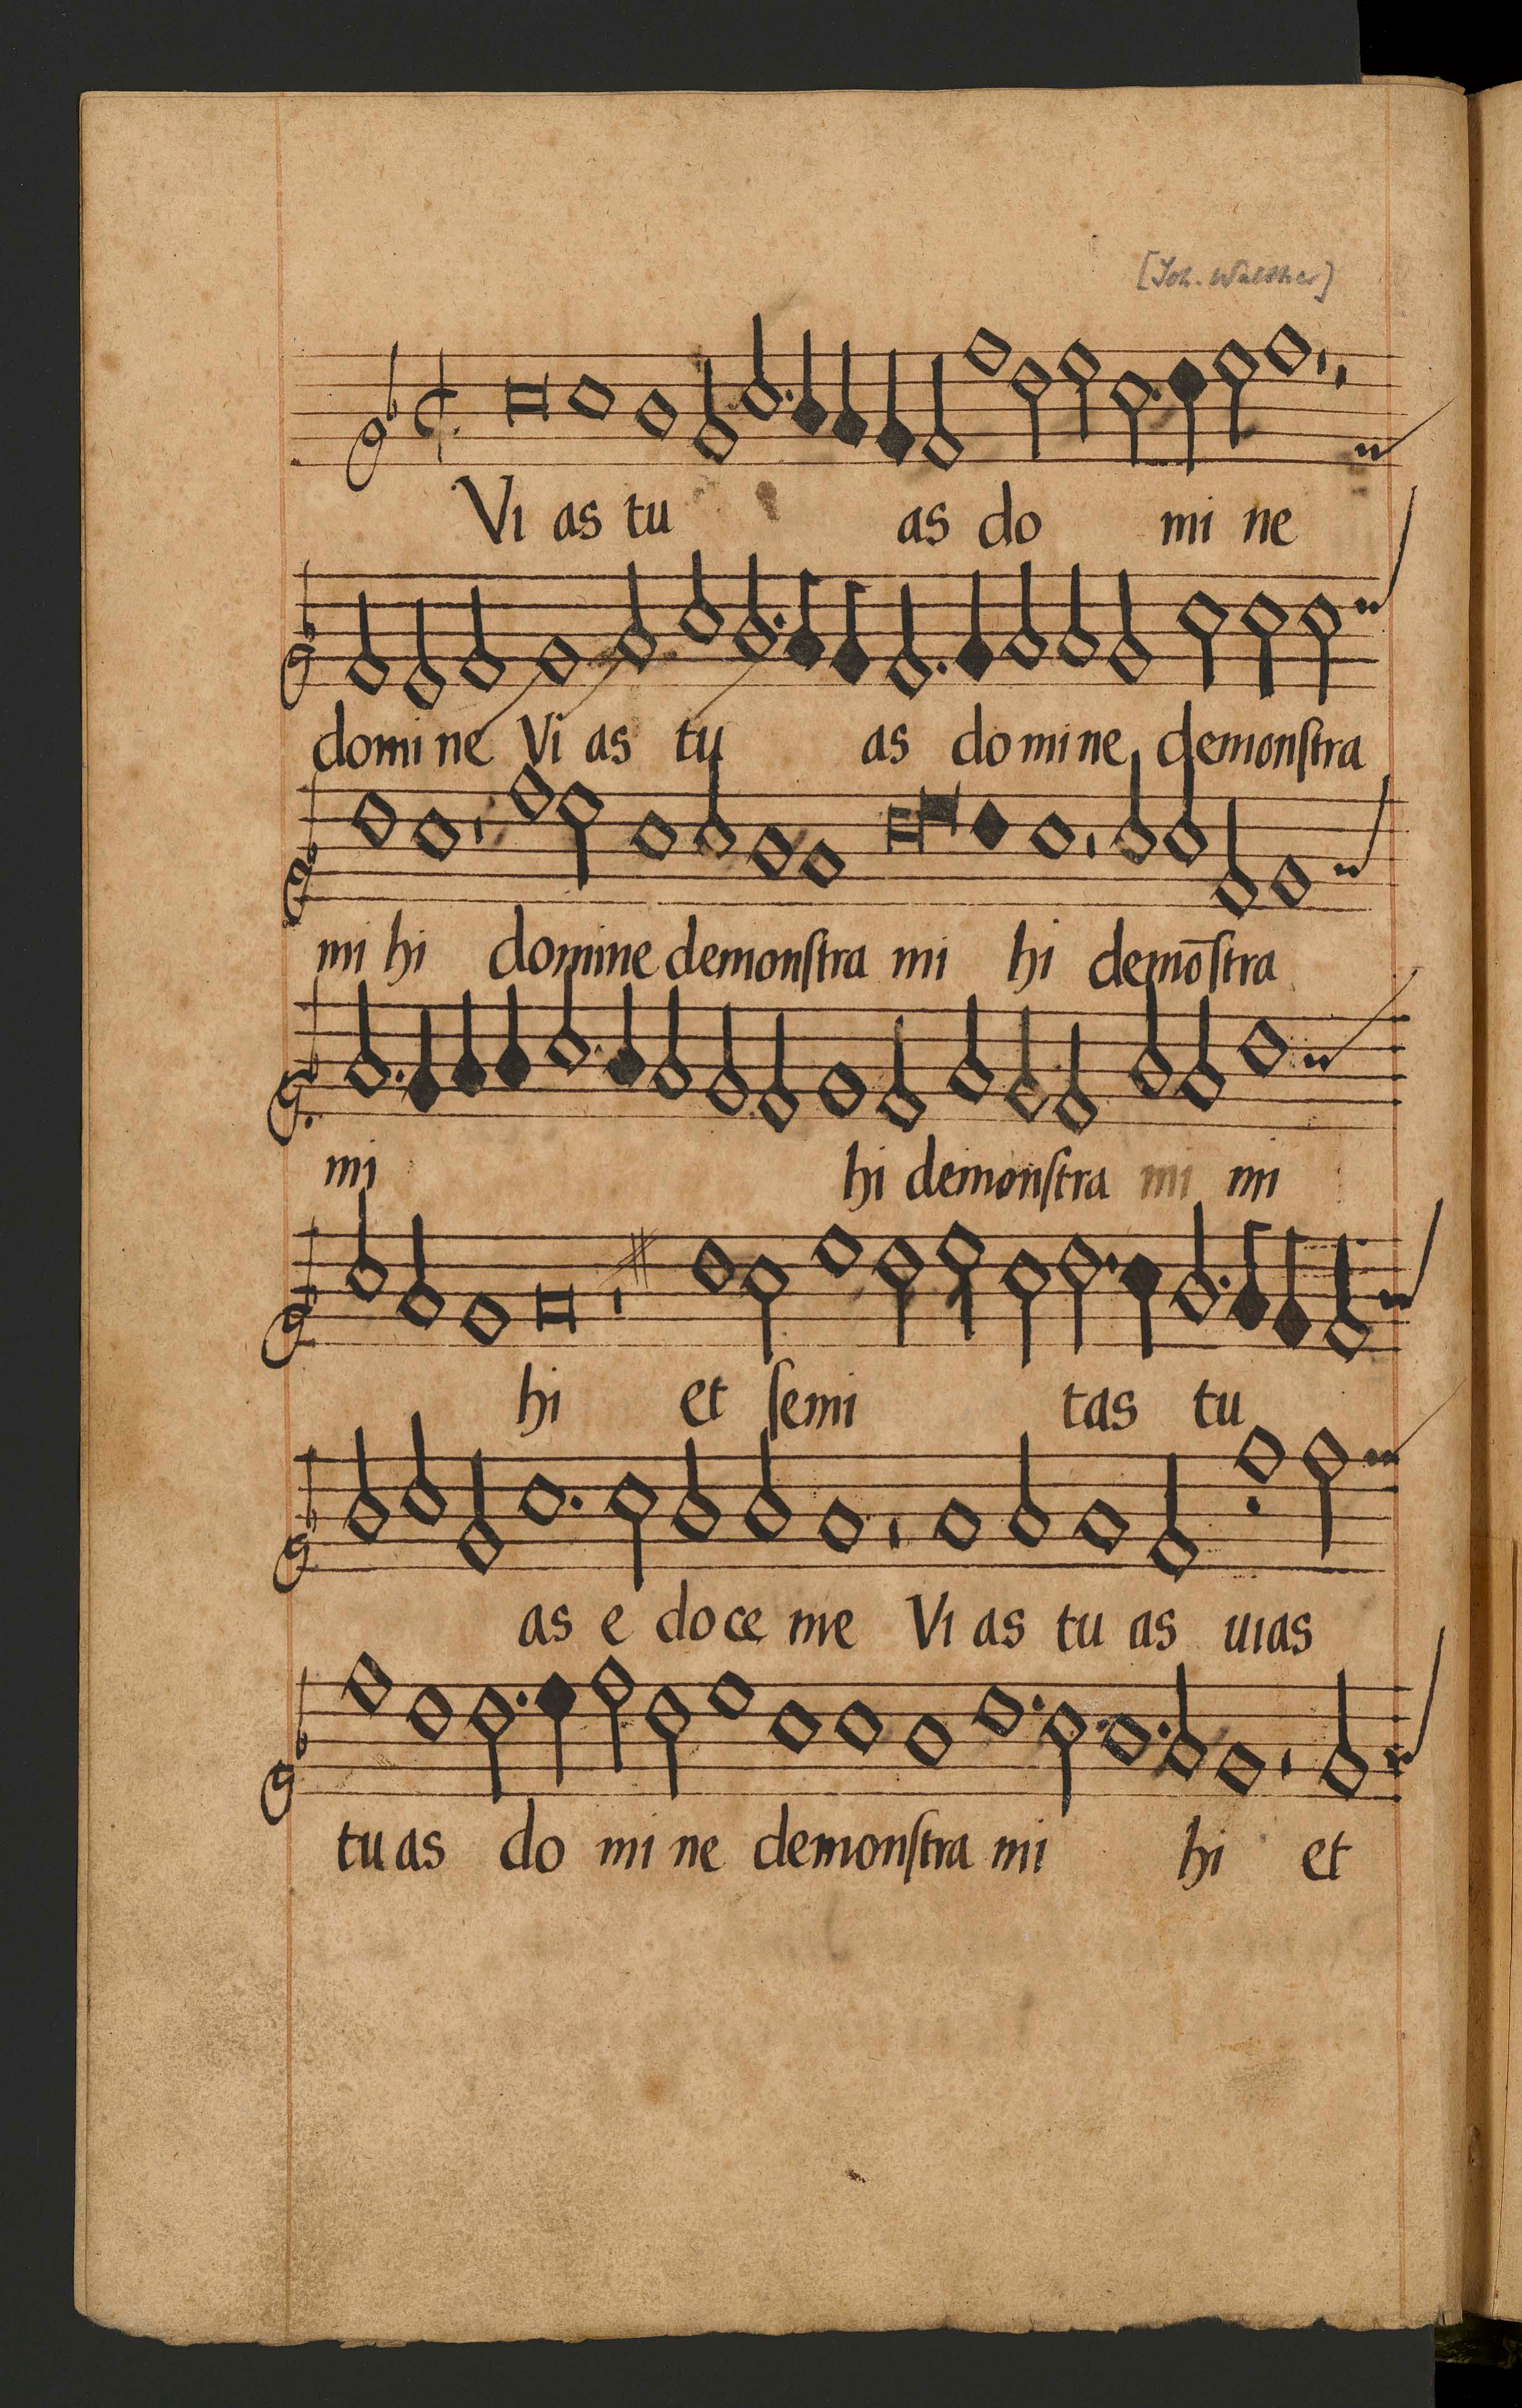 [Joh. Walther]
Vi as tu as do mi ne
domi ne Vi as tu as do mi ne demonſtra
mi hi domine demonſtra mi hi demōſtra
mi hi demonſtra mi mi
hi et ſemi tas tu
as e do ce me Vi as tu as uias
tu as do mi ne demonſtra mi hi et